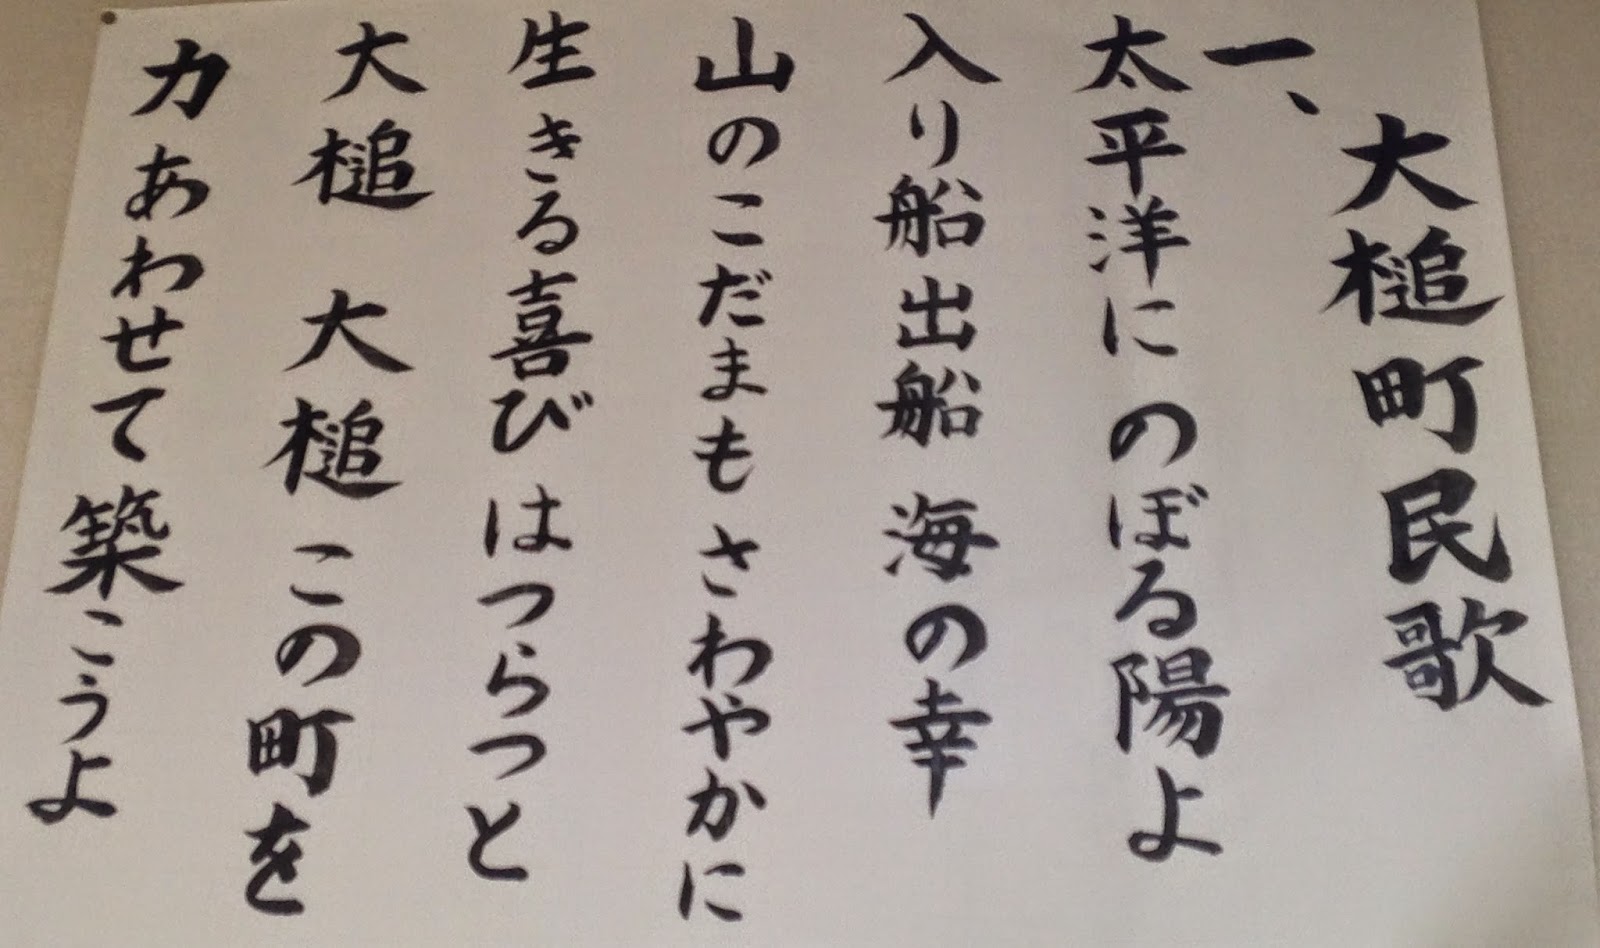 大槌町民歌
一、
太平洋に のぼる陽よ
入り船出船 海の幸
山のこだまも さわやかに
生きる喜び はつらつと
大槌 大槌 この町を
力あわせて築こうよ